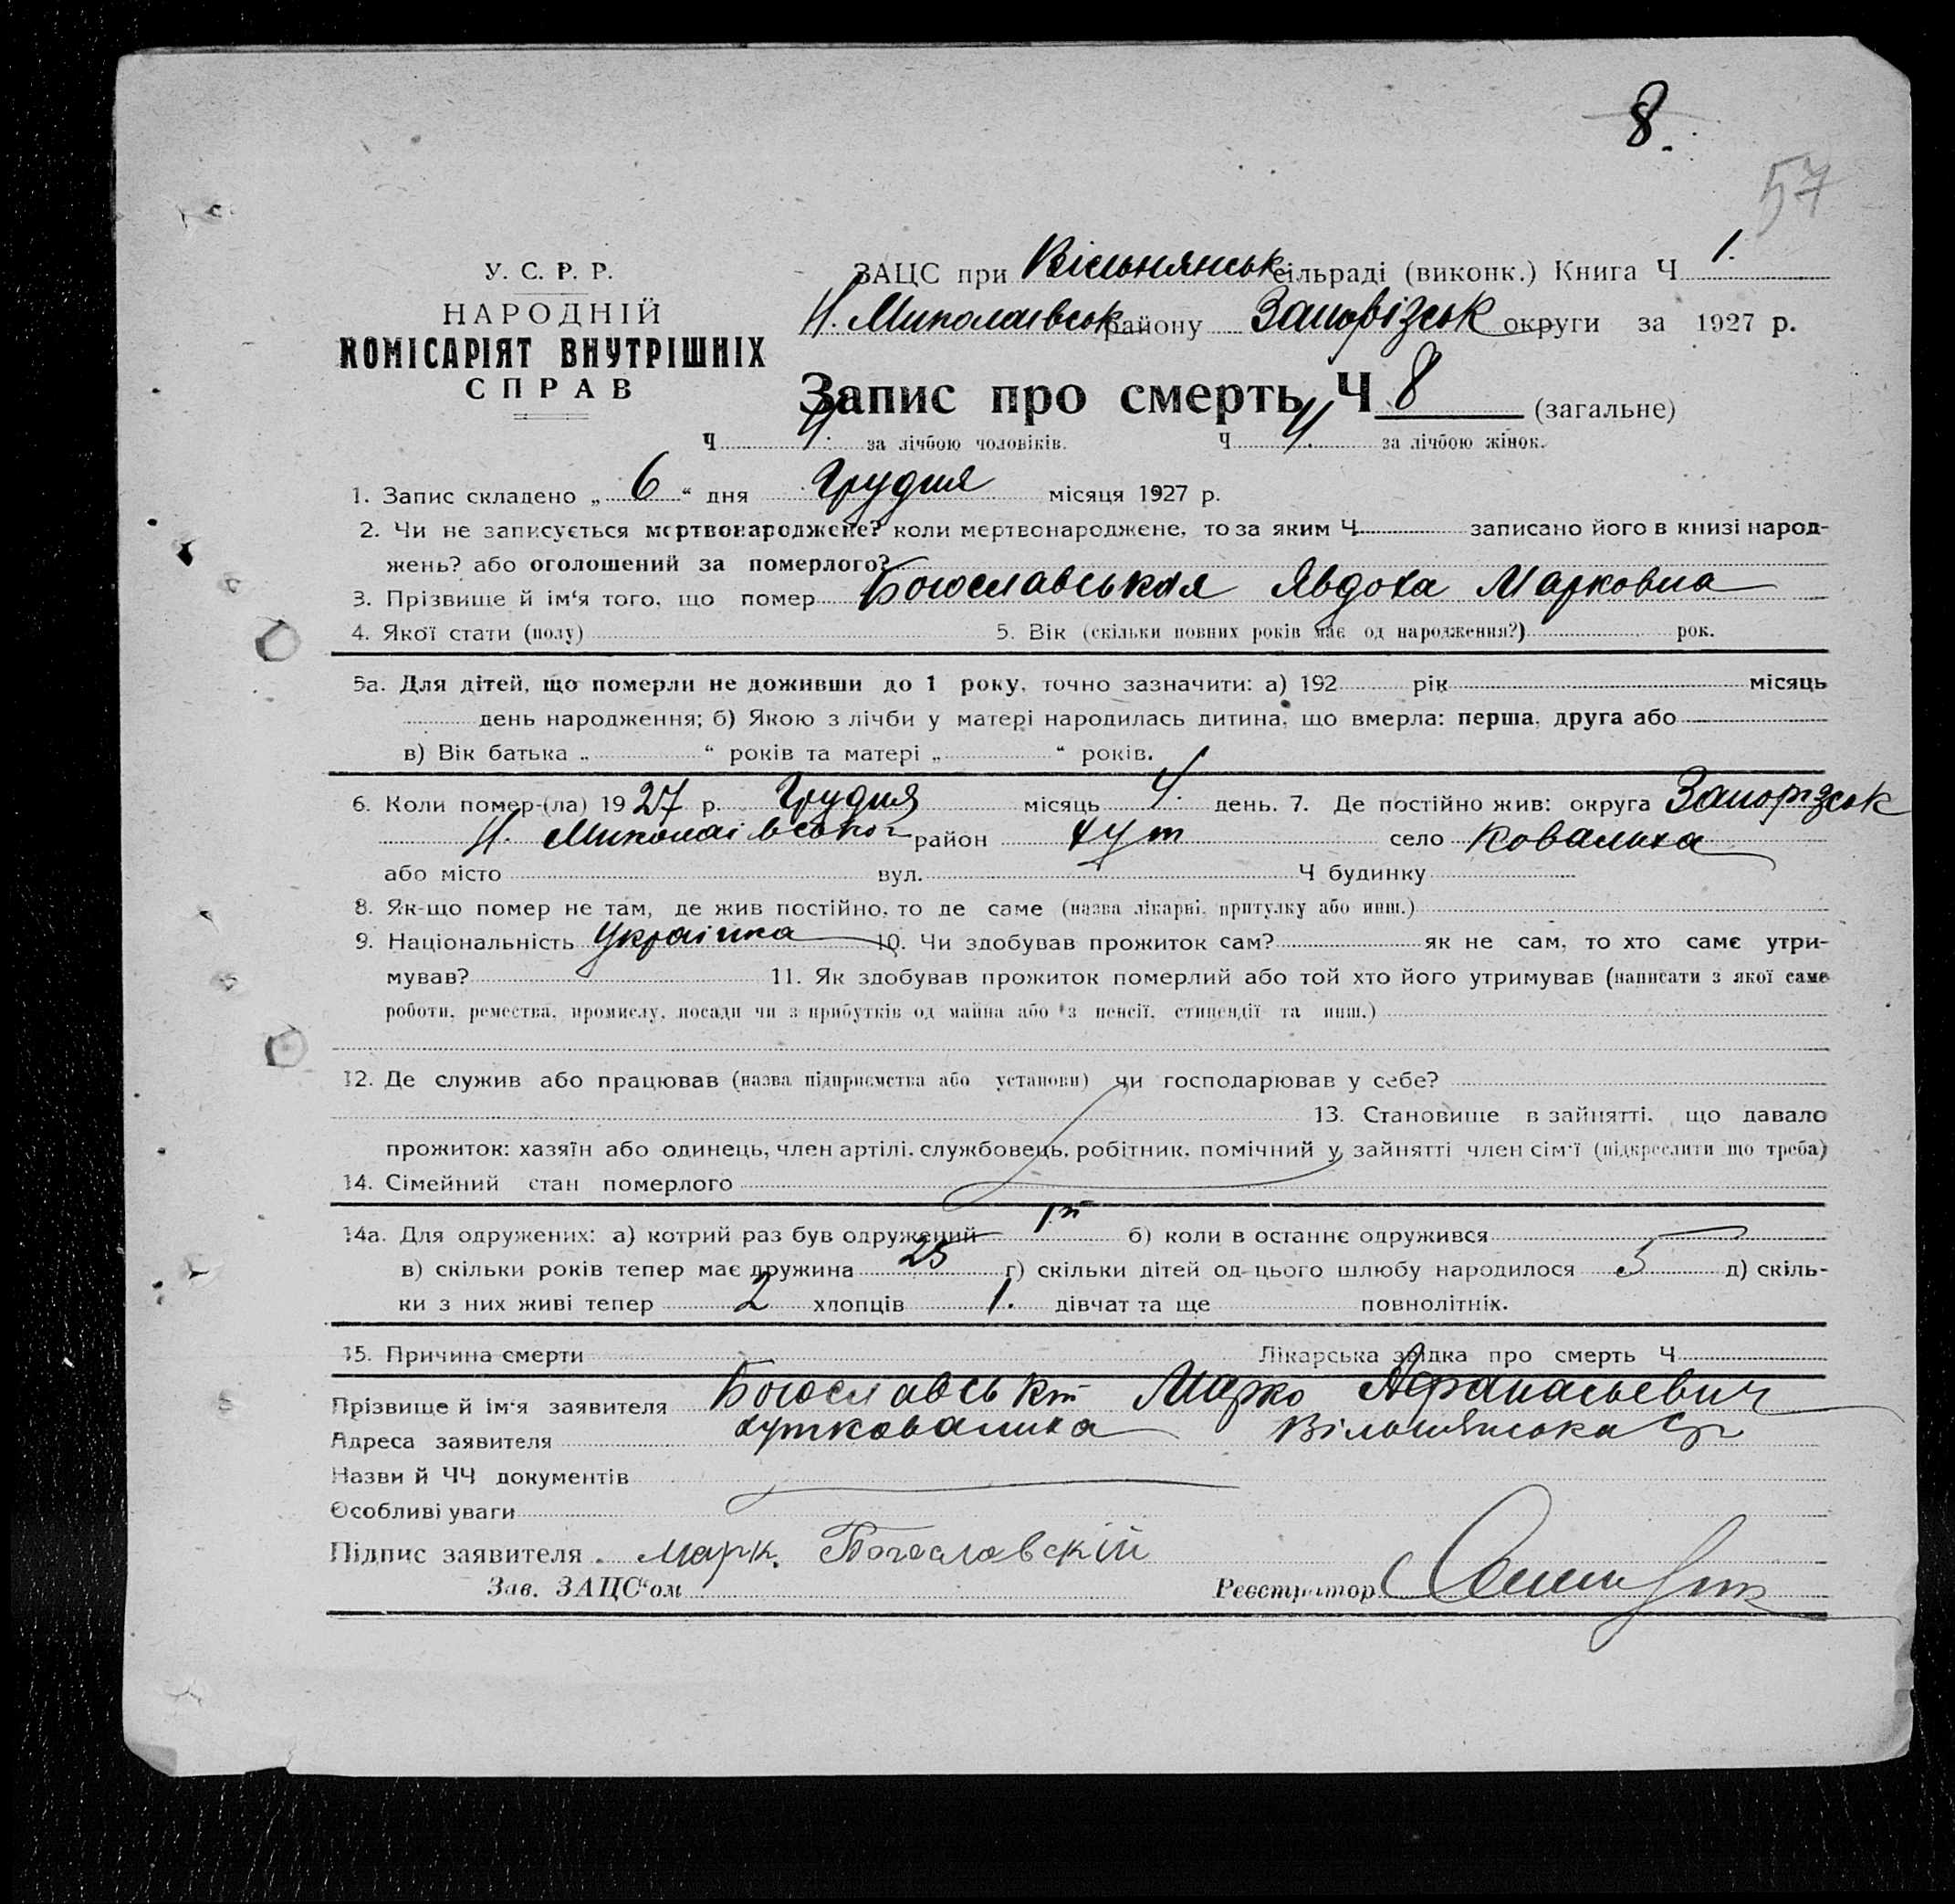 8.
57
У. С. Р. Р.
НАРОДНІЙ
КОМІСАРІЯТ ВНУТРІШНІХ
СПРАВ
ЗАЦС при Вільнянськ сільраді (виконк.) Книга Ч 1.
Н. Миколаївськ району Запорізськ округи за 1927 р.
Запис про смерть Ч 8 (загальне)
Ч 4. за лічбою чоловіків. Ч 4. за лічбою жінок.
1. Запис складено „ 6 “ дня Грудня місяця 1927 р.
2. Чи не записується мертвонароджене? коли мертвонароджене, то за яким Ч записано його в книзі народ-
жень? або оголошений за померлого?
3. Прізвище й ім‘я того, що помер Богославськая Явдоха Марковна
4. Якої стати (полу) 5. Вік (скільки повних років має од народження?) рок.
5а. Для дітей, що померли не доживши до 1 року, точно зазначити: а) 192 рік місяць
день народження; б) Якою з лічби у матері народилась дитина, що вмерла: перша, друга або
в) Вік батька „ “ років та матері „ “ років.
6. Коли помер-(ла) 19 27 р. Грудня місяць 4. день. 7. Де постійно жив: округа Запорізськ
Н. Миколаівської район хут село Ковалиха
або місто вул. Ч будинку
8. Як-що помер не там, де жив постійно, то де саме (назва лікарні, притулку або инш.)
9. Національність Українка 10. Чи здобував прожиток сам? як не сам, то хто саме утри-
мував? 11. Як здобував прожиток померлий або той хто його утримував (написати з якої саме
роботи, ремества, промислу, посади чи з прибутків од майна або з пенсії, стипендії та инш.)
12. Де служив або працював (назва підприємства або установи) чи господарював у себе?
13. Становище в зайнятті, що давало
прожиток: хазяїн або одинець, член артілі, службовець, робітник, помічний у зайнятті член сім‘ї (підкреслити що треба)
14. Сімейний стан померлого
14а. Для одружених: а) котрий раз був одружений 1й б) коли в останнє одружився
в) скільки років тепер має дружина 25 г) скільки дітей од цього шлюбу народилося 5 д) скіль-
ки з них живі тепер 2 хлопців 1. дівчат та ще повнолітніх.
15. Причина смерти Лікарська звідка про смерть Ч
Прізвище й ім‘я заявителя Богославськ Марко Афанасьевич
Адреса заявителя хут Ковалиха Вільнянська
Назви й ЧЧ документів
Особливі уваги
Підпис заявителя марк. Богославскій
Зав. ЗАЦС‘ом Реєстратор